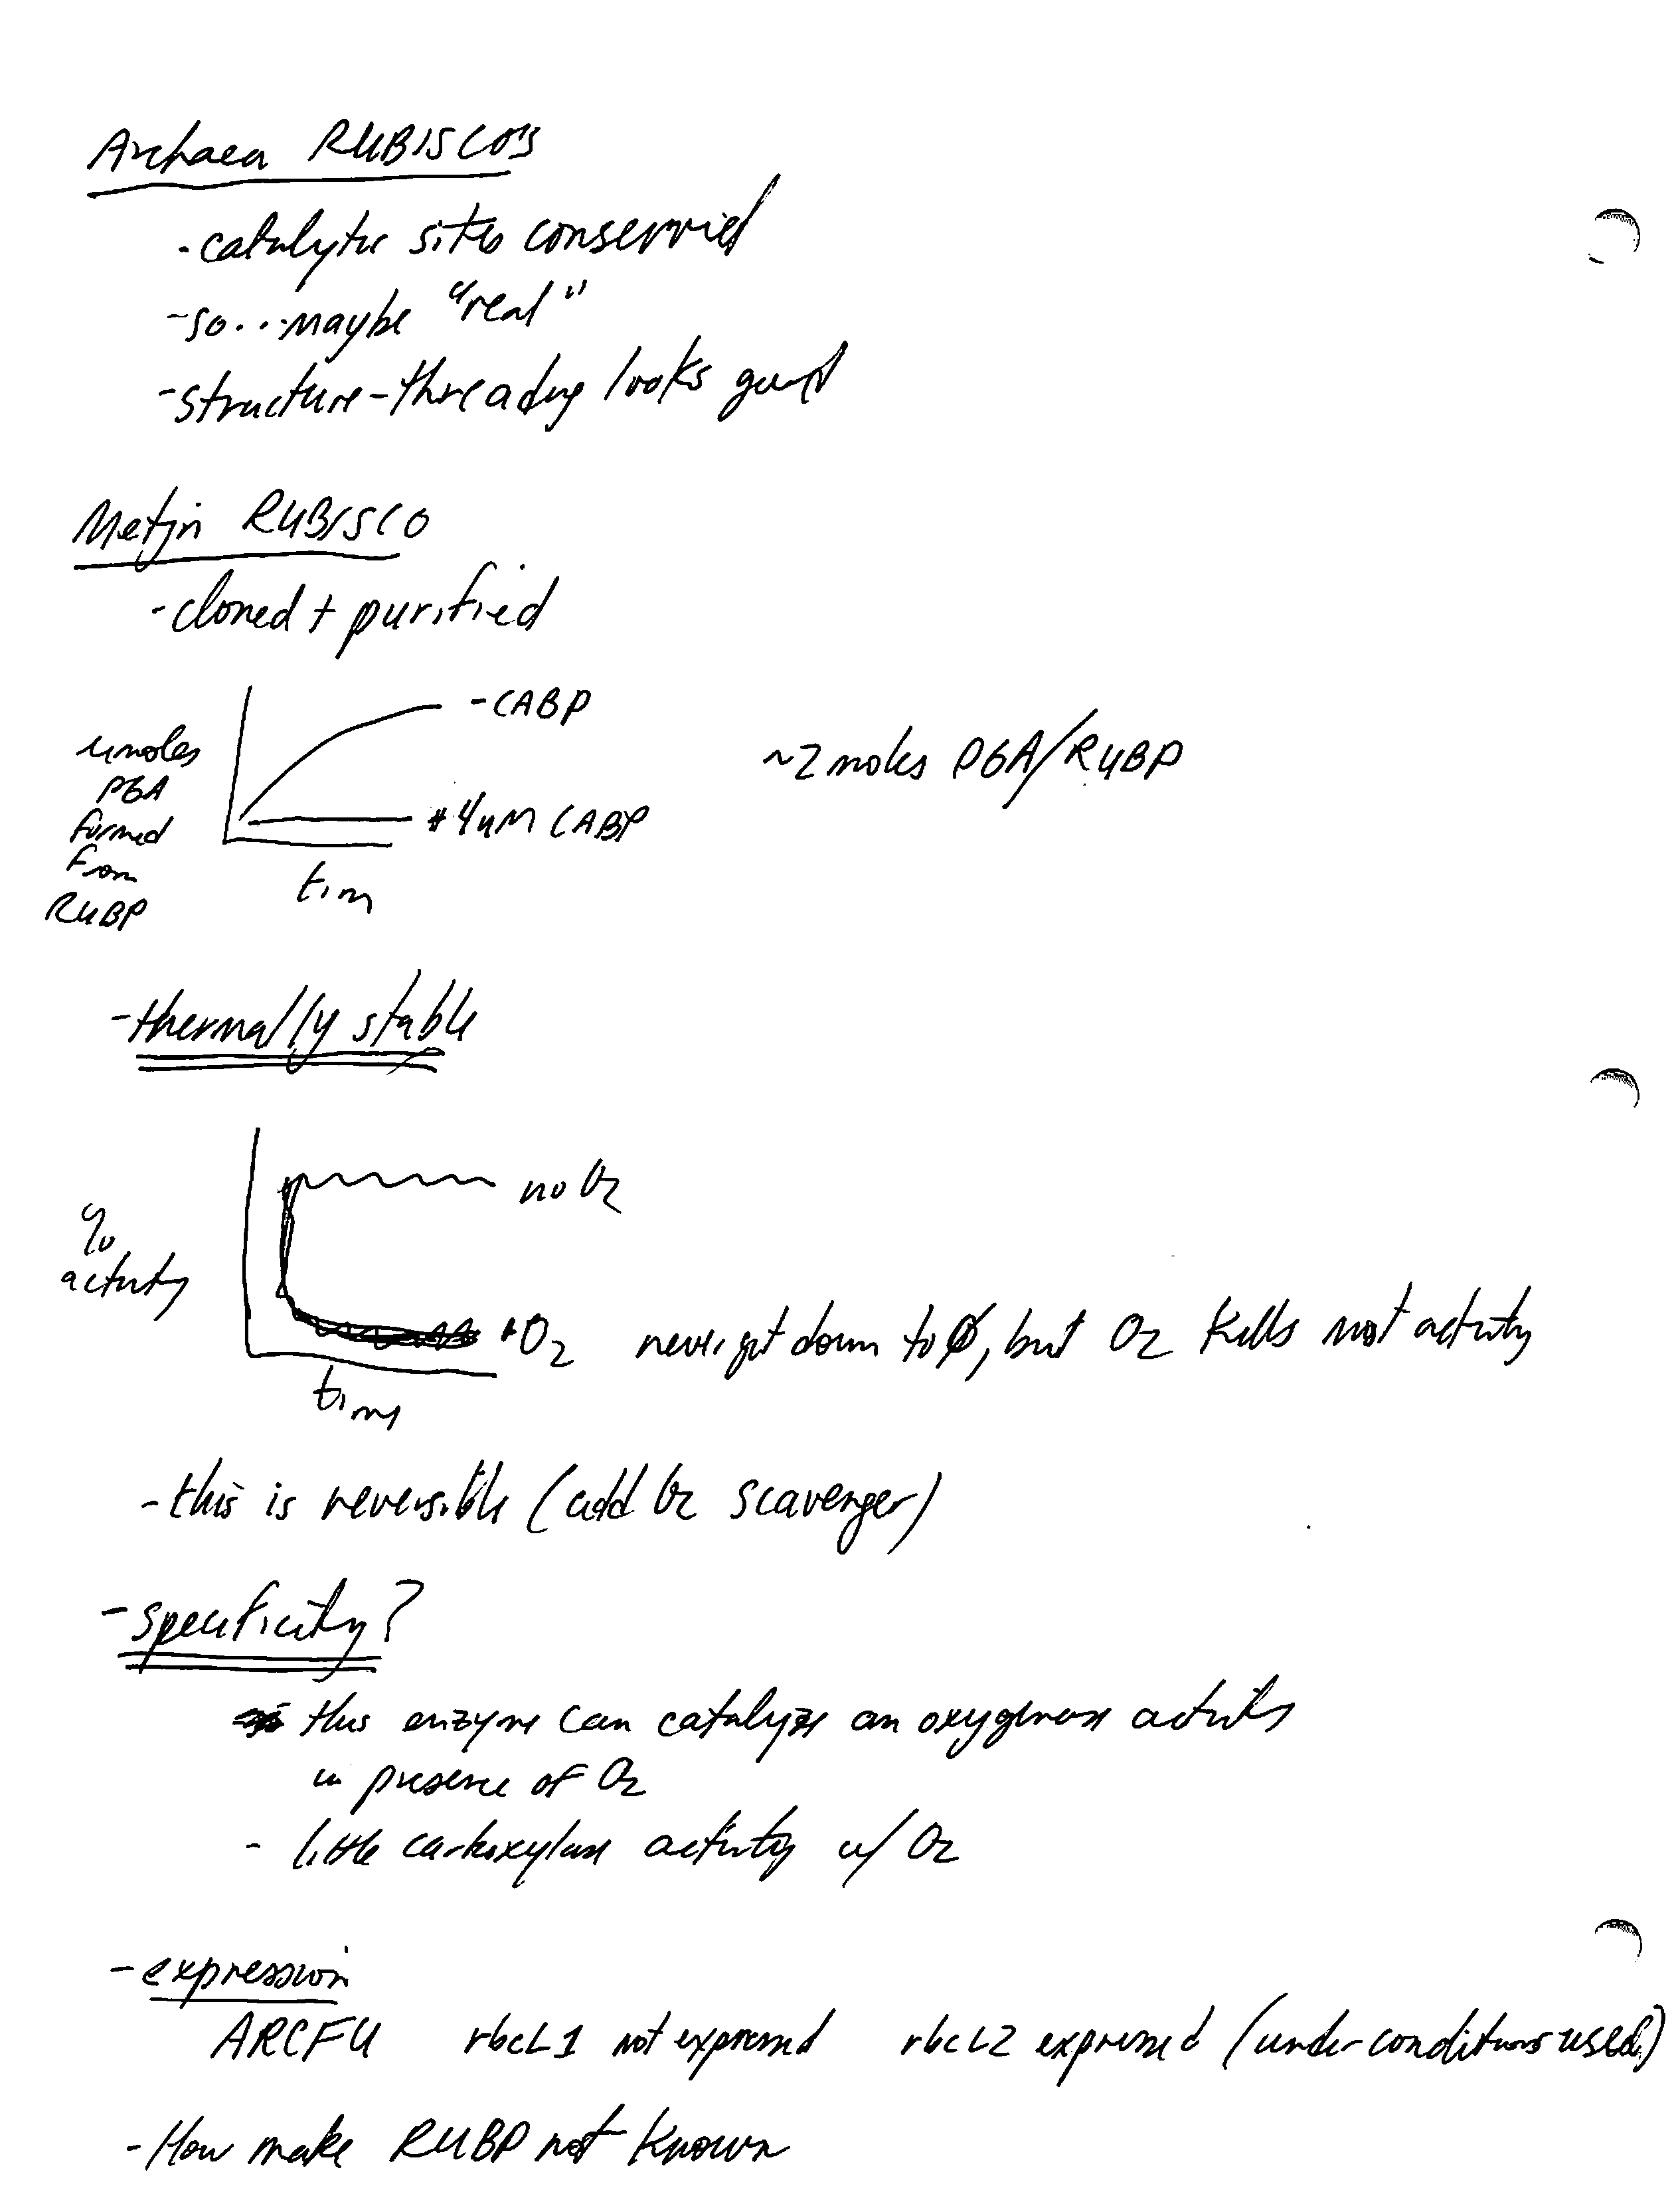 Archaea RUBISCO's
- catalytic sites conserved
- so...maybe "real"
- structure-threading looks good
Metjn RUBISCO
- cloned + purified
- CABP
umoles
PGA
formed
from
RUBP
+ 4uM CABP
time
~2 moles PGA/RUBP
- thermally stable
no O2
%
activity
+O2 never get down to Ø, but O2 kills most activity
time
- this is reversible (add O2 scavenger)
- specificity?
this enzyme can catalyze an oxygenase activity
in presence of O2
- little carboxylase activity w/ O2
- expression
ARCFU rbcL1 not expressed rbcL2 expressed (under conditions used)
- How make RUBP not known